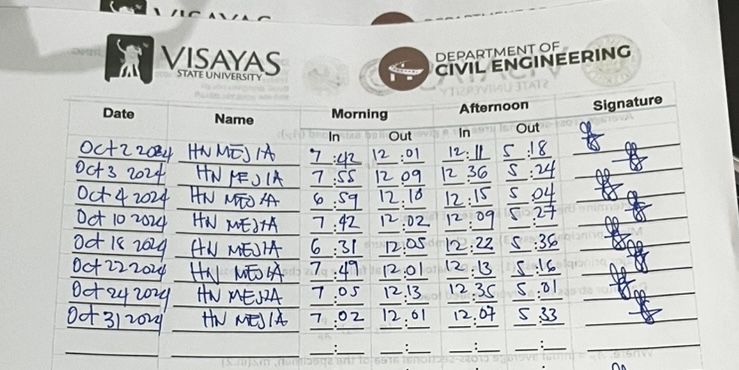 VISAYAS
STATE UNIVERSITY
DEPARTMENT OF
CIVIL ENGINEERING
Date Name Morning Afternoon Signature
In Out In Out
Oct 2 2024 HN MEJIA 7:42 12:01 12:11 5:18
Oct 3 2024 HN MEJIA 7:55 12 09 12 36 5:24
Oct 4 2024 HN MEJIA 6:59 12:18 12:15 5:04
Oct 10 2024 HN MEJIA 7:42 12:02 12:09 5:27
Oct 18 2024 HN MEJIA 6:31 12:05 12:22 5:36
Oct 22 2024 HN MEJIA 7:49 12:01 12:13 5:16
Oct 24 2024 HN MEJIA 7:05 12:13 12:35 5:01
Oct 31 2024 HN MEJIA 7:02 12:01 12:07 5:33